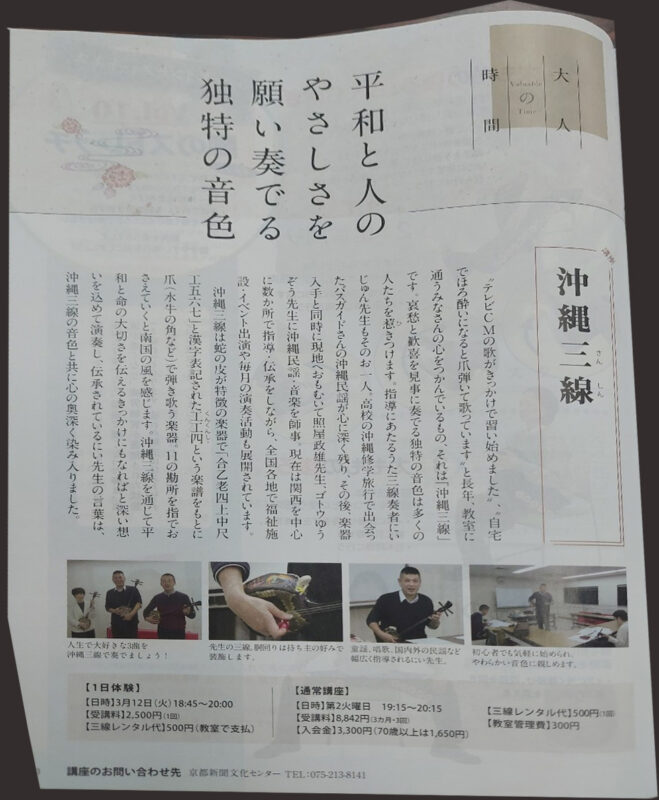 大人の時間
Valuable Time
平和と人の
やさしさを
願い奏でる
独特の音色
沖縄三線
さんしん
“テレビCMの歌がきっかけで習い始めました”、“自宅
でほろ酔いになると爪弾いて歌っています”と長年、教室に
通うみなさんの心をつかんでいるもの、それは『沖縄三線』
です。哀愁と歓喜を見事に奏でる独特の音色は多くの
人たちを惹きつけます。指導にあたるうた三線奏者にい
じゅん先生もそのお一人。高校の沖縄修学旅行で出会っ
たバスガイドさんの沖縄民謡が心に深く残り、その後、楽器
入手と同時に現地へおもむいて照屋政雄先生、ゴトウゆう
ぞう先生に沖縄民謡・音楽を師事。現在は関西を中心
に数か所で指導・伝承をしながら、全国各地で福祉施
設・イベント出演や毎月の演奏活動も展開されています。
沖縄三線は蛇の皮が特徴の楽器で「合乙老四上中尺
工五六七」と漢字表記された「工工四」という楽譜をもとに
くんくんしー
爪(水牛の角など)で弾き歌う楽器。11の勘所を指でお
さえていくと南国の風を感じます。沖縄三線を通じて平
和と命の大切さを伝えるきっかけにもなればと深い想
いを込めて演奏し、伝承されているにい先生の言葉は、
沖縄三線の音色と共に心の奥深く染み入りました。
人生で大好きな3曲を
沖縄三線で奏でましょう!
先生の三線。胴回りは持ち主の好みで
装飾します。
童謡、唱歌、国内外の民謡など
幅広く指導されるにい先生。
初心者でも気軽に始められ、
やわらかい音色に親しめます。
【1日体験】
【日時】3月12日(火)18:45〜20:00
【受講料】2,500円(1回)
【三線レンタル代】500円(教室で支払)
【通常講座】
【日時】第2火曜日 19:15〜20:15
【受講料】8,842円(3カ月・3回)
【入会金】3,300円(70歳以上は1,650円)
【三線レンタル代】500円(1回)
【教室管理費】300円
講座のお問い合わせ先 京都新聞文化センター TEL:075-213-8141